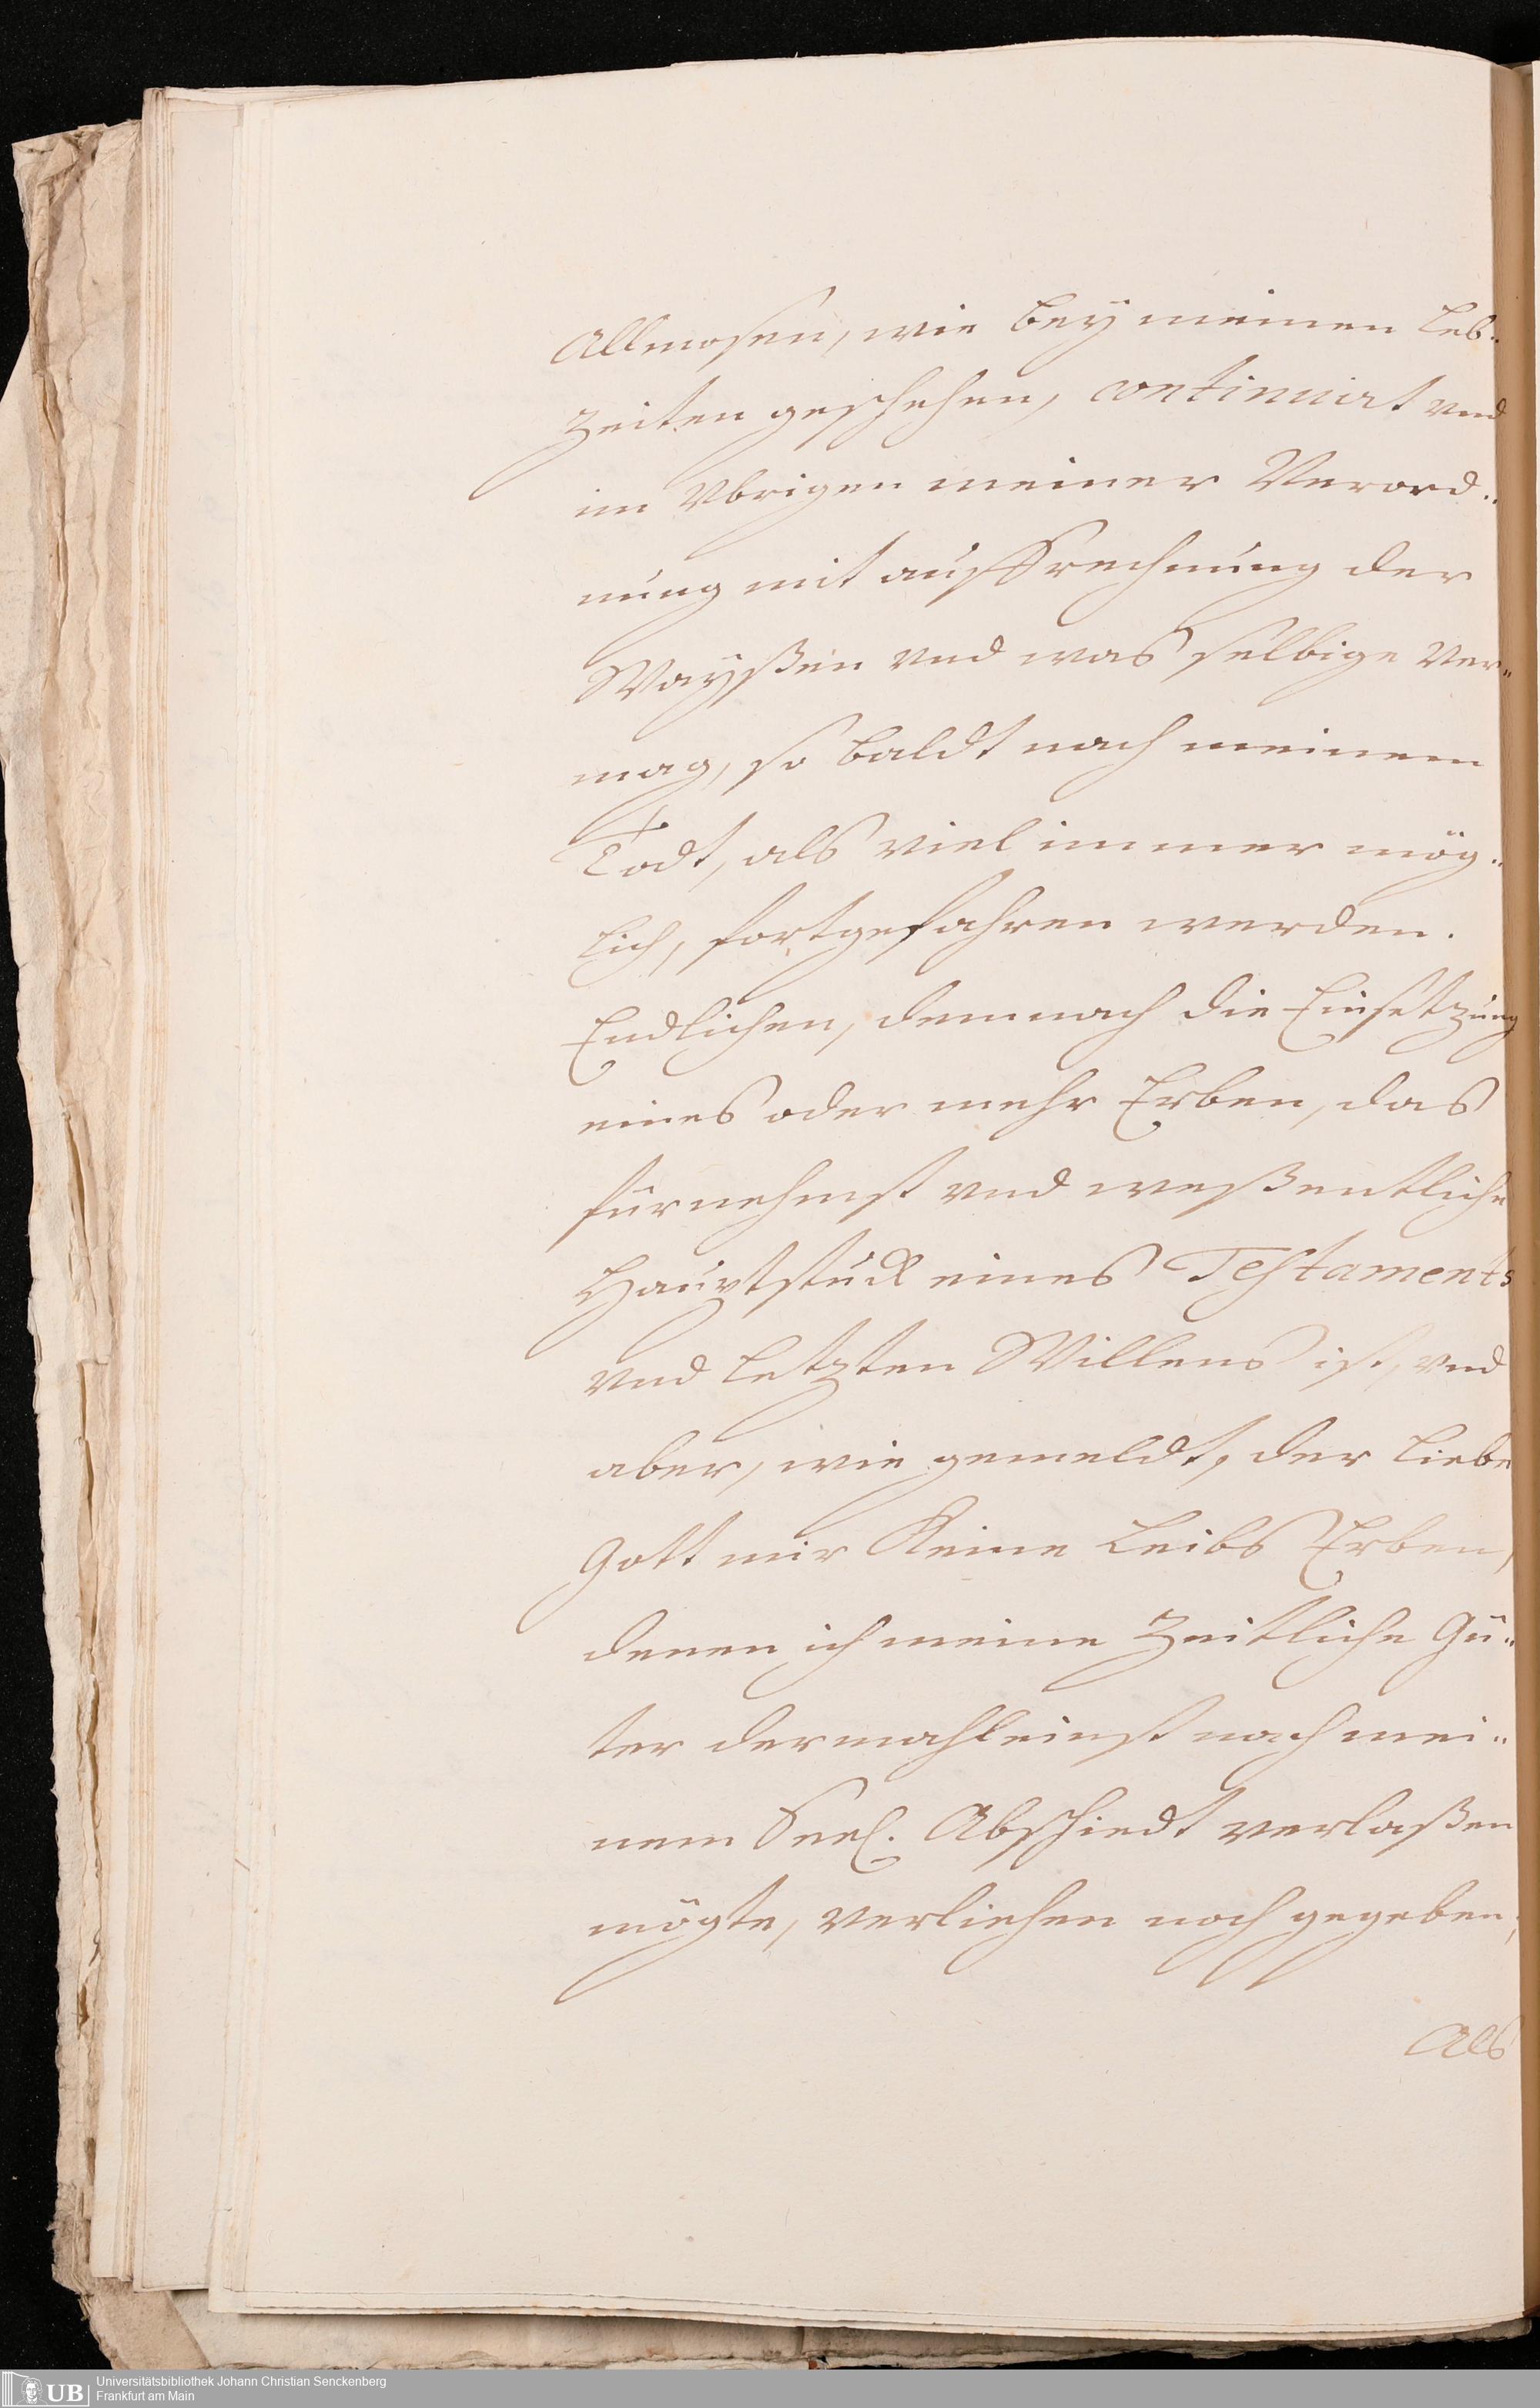 Allmosen, wie bey meinen Leb¨
zeiten geschehen, continuirt vnd
im Vbrigen meiner Verord¨
nung mit auffrechnung der
Wayßen vnd was selbige Ver¨
mag, so baldt nach meinem
Todt, als viel immer mög¨
lich, fortgefahren werden.
Endlichen, demnach die Einsetzung
eines oder mehr Erben, das
fürnehmst vnd weßentliche
Hauptstück eines Testaments
vnd letzten Willens ist, vnd
aber, wie gemeldt, der liebe
Gott mir Keine Leibs Erben,
denen ich meine Zeitliche Gü¨
ter dermahleinst nach mei¨
nem Seel. Abschiedt verlaßen
mögte, verliehen noch gegeben,
Als
UB
Universitätsbibliothek Johann Christian Senckenberg
Frankfurt am Main